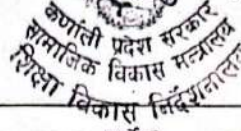 कर्णाली प्रदेश सरकार
सामाजिक विकास मन्त्रालय
शिक्षा विकास निर्देशनालय